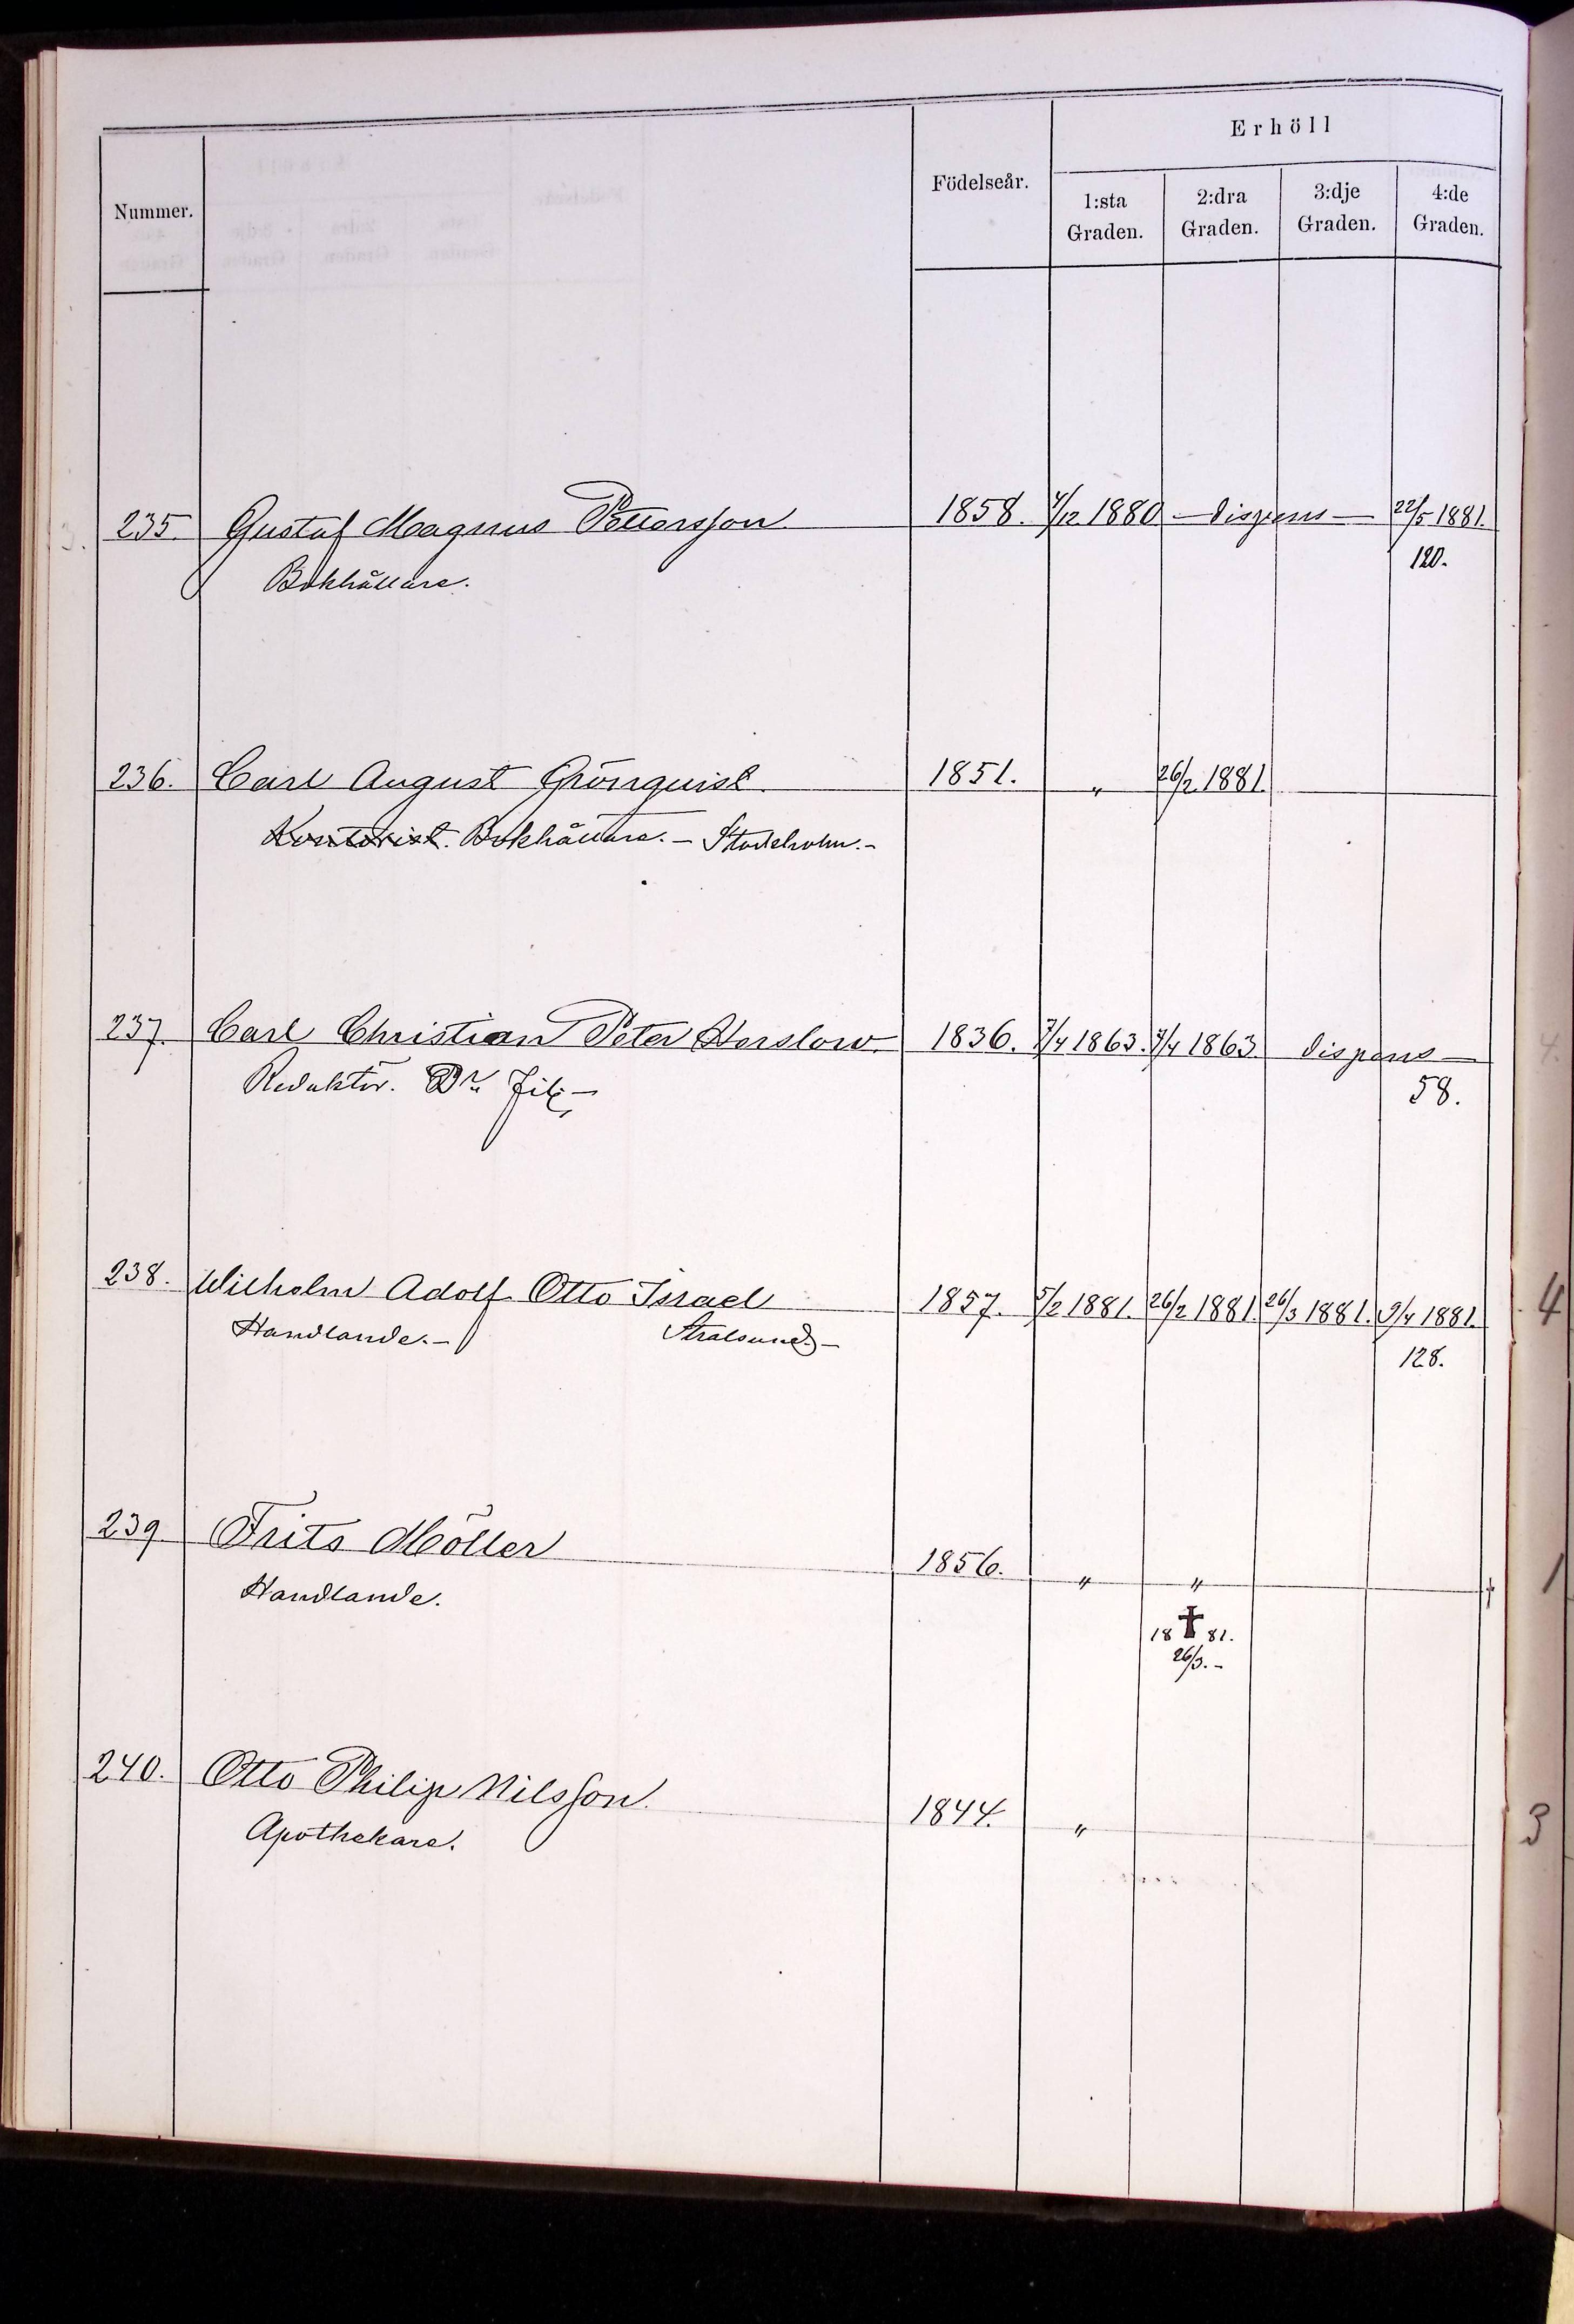 Erhöll
Nummer. Födelseår. 1:sta Graden. 2:dra Graden. 3:dje Graden. 4:de Graden.
235. Gustaf Magnus Pettersson. 1858. 4/12 1880 — dispens — 22/5 1881.
Bokhållare. 120.
236. Carl August Grönquist. 1851. " 26/2 1881.
Kontorist. Bokhållare. – Stockholm. –
237. Carl Christian Peter Herslow. 1836. 7/4 1863. 7/4 1863. dispens —
Redaktör. Dr. 58.
238. Wilhelm Adolf Otto Israel 1857. 5/2 1881. 26/2 1881. 26/3 1881. 9/4 1881. 4
Handlande. – Stralsund. – 128.
239. Frits Möller 1856. " " † 1
Handlande.
18 † 81.
26/3. –
240. Otto Philip Nilsson. 1844. " 3
Apothekare.